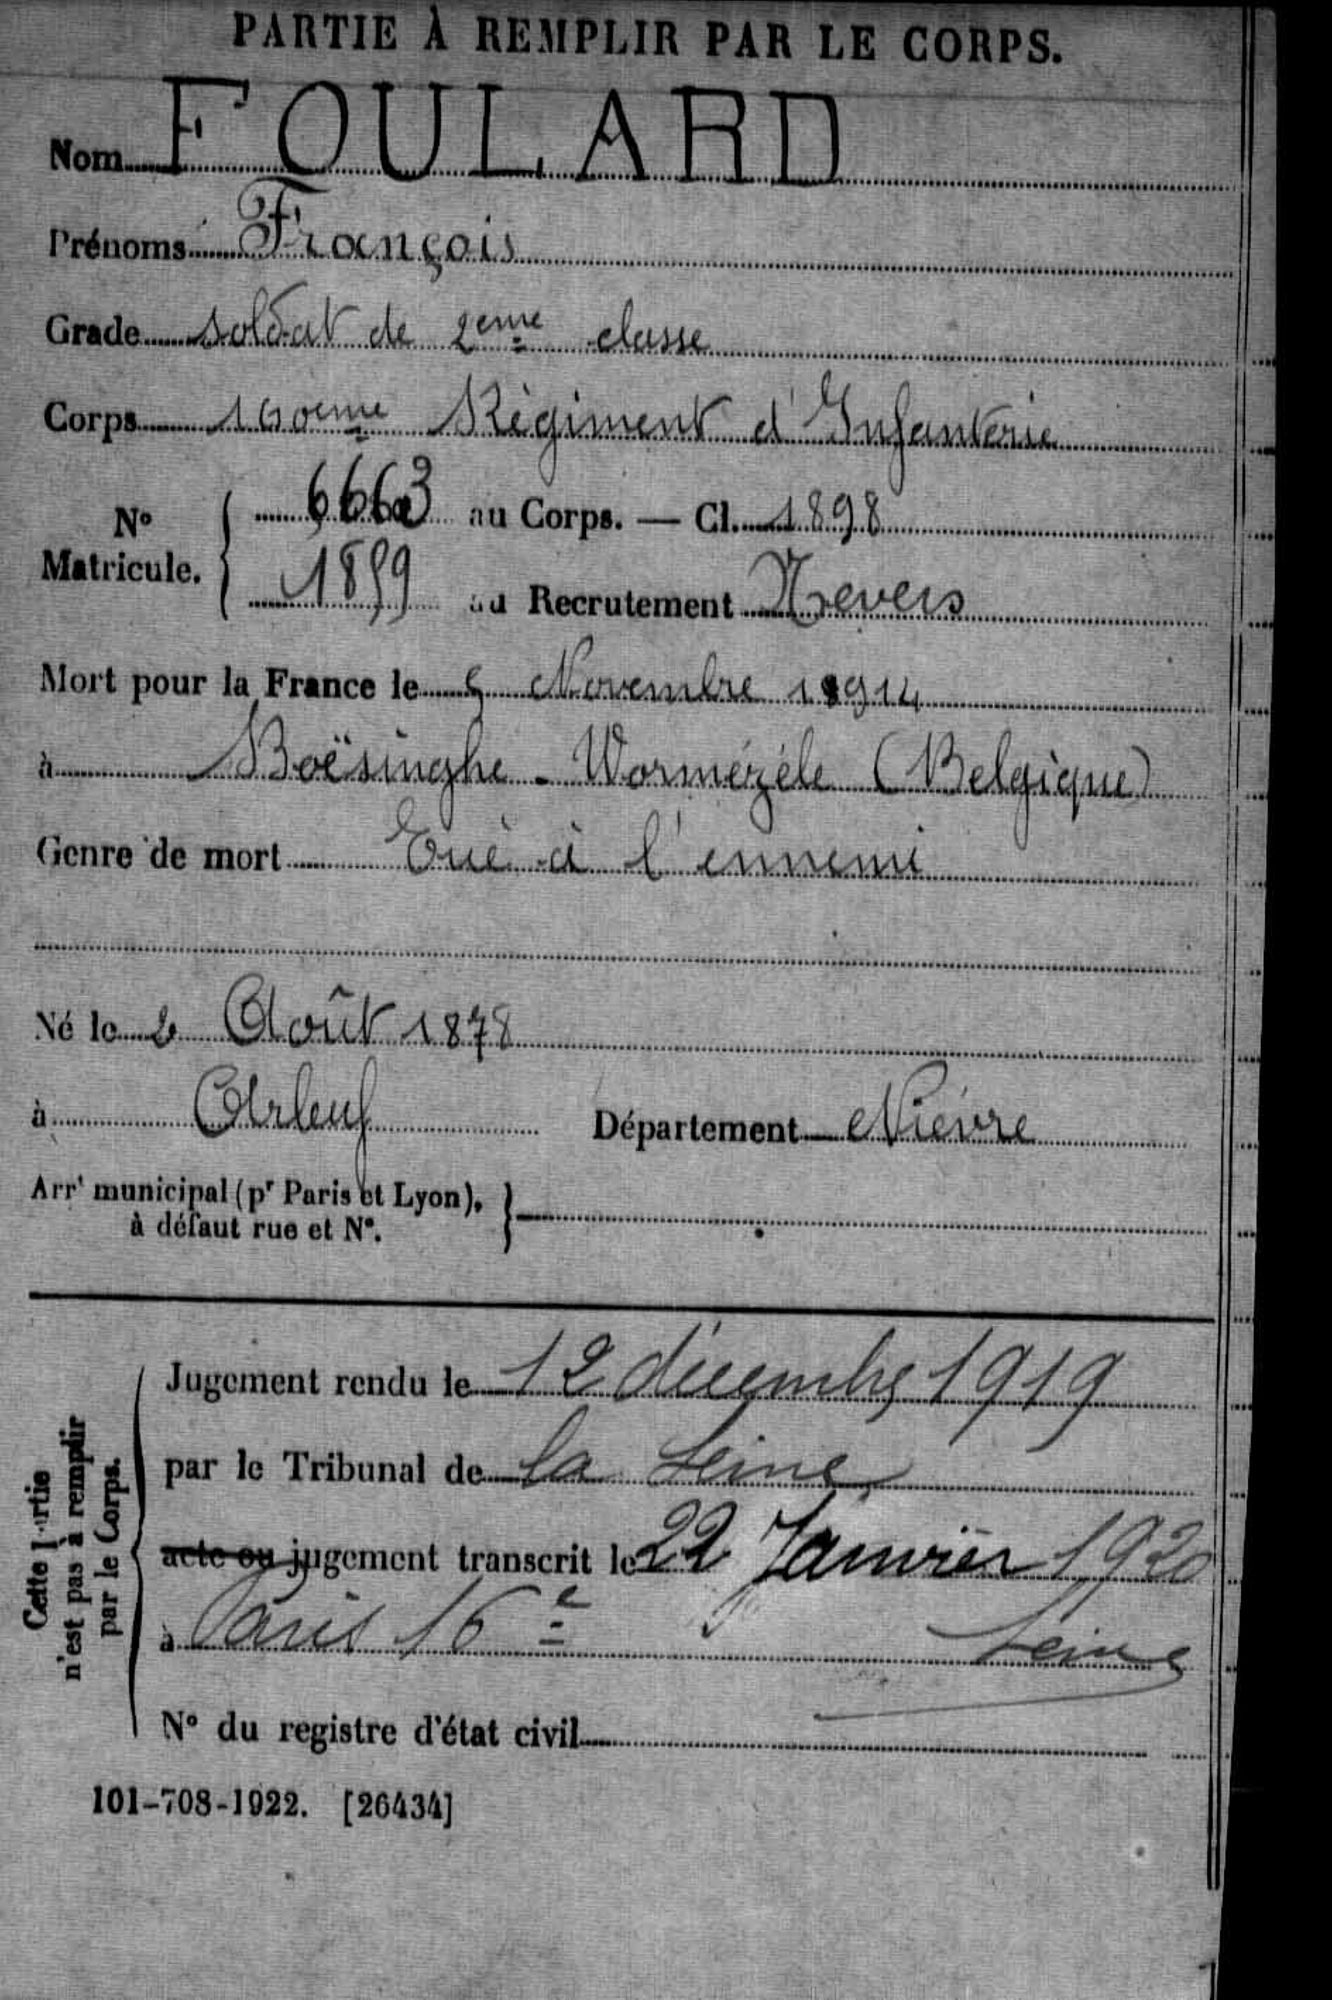 PARTIE À REMPLIR PAR LE CORPS.
Nom FOULARD
Prénoms François
Grade soldat de 2eme classe
Corps 160eme Régiment d'Infanterie
N° Matricule. 6663 au Corps. — Cl. 1898
1859 au Recrutement Nevers
Mort pour la France le 5 Novembre 1914
à Boësinghe - Wormézéle (Belgique)
Genre de mort Tué à l'ennemi
Né le 2 Août 1878
à Arleuf Département Nièvre
Arrt municipal (pr Paris et Lyon),
à défaut rue et N°.
Cette partie n'est pas à remplir par le Corps.
Jugement rendu le 12 décembre 1919
par le Tribunal de la Seine
acte ou jugement transcrit le 22 Janvier 1920
à Paris 16e Seine
N° du registre d'état civil
101-708-1922. [26434]